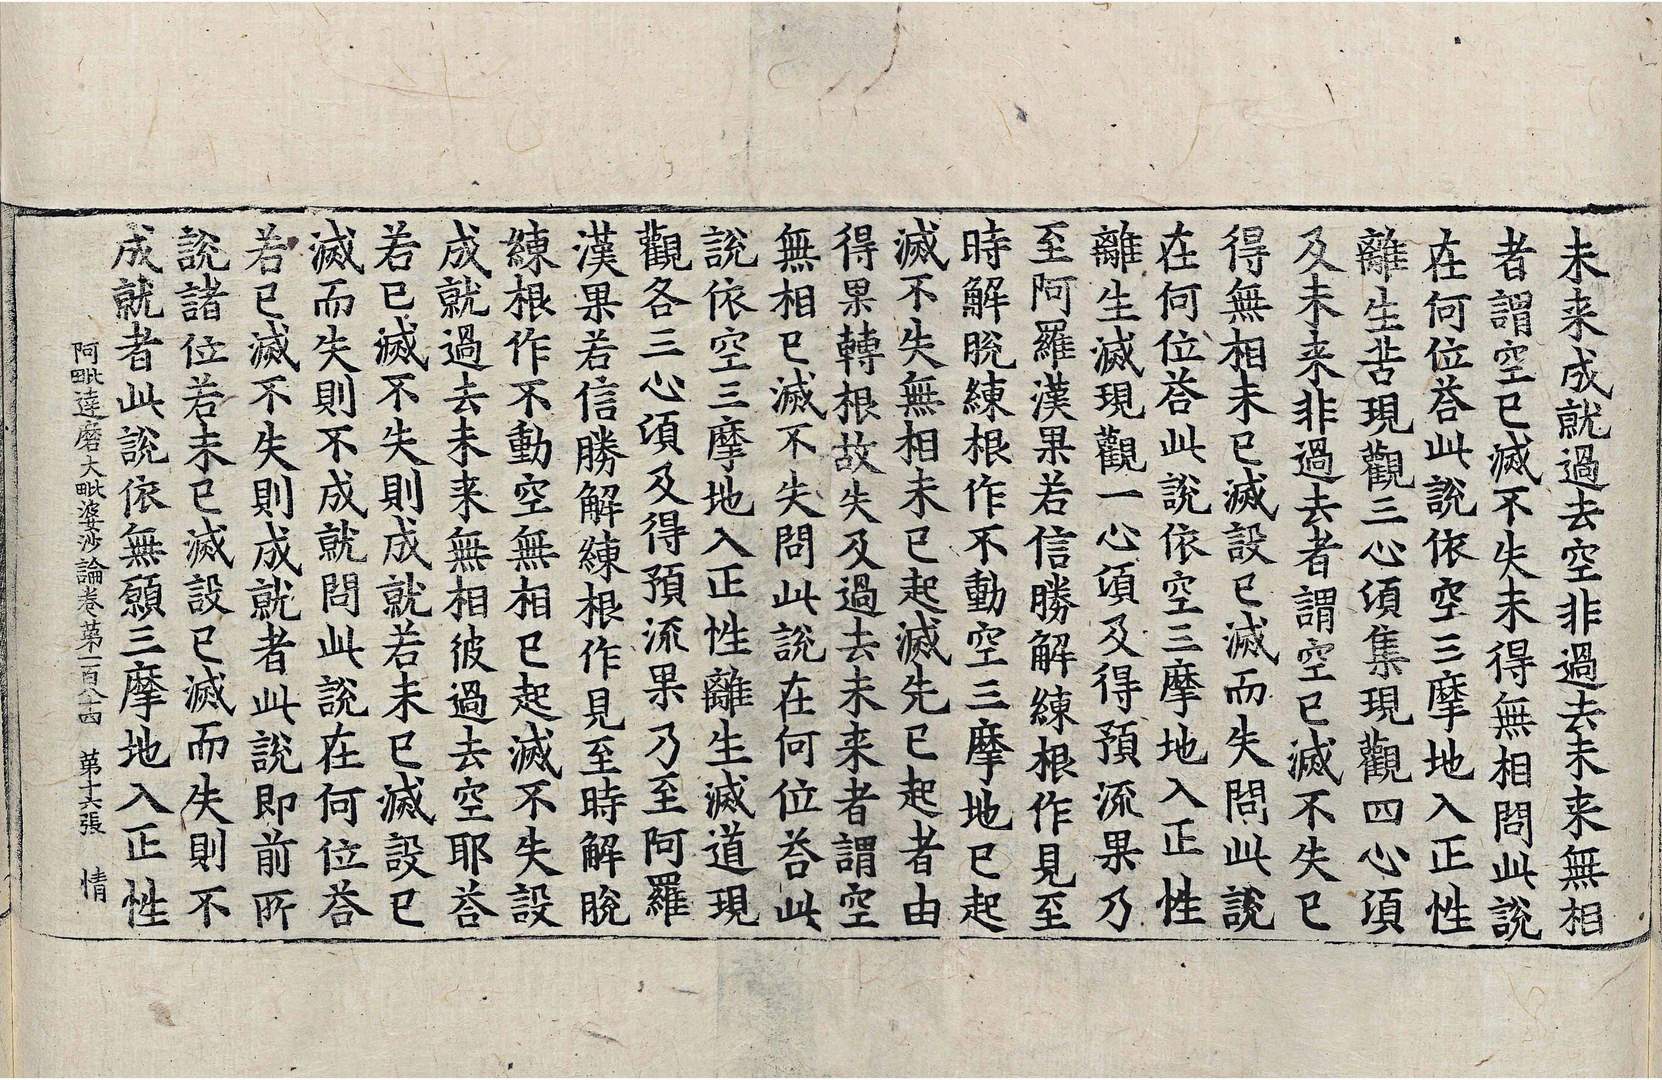 未来成就過去空非過去未来無相
者謂空已滅不失未得無相問此說
在何位荅此說依空三摩地入正性
離生苦現觀三心湏集現觀四心湏
及未来非過去者謂空已滅不失已
得無相未已滅設已滅而失問此說
在何位荅此說依空三摩地入正性
離生滅現觀一心湏及得預流果乃
至阿羅漢果若信勝解練根作見至
時解脫練根作不動空三摩地已起
滅不失無相未已起滅先已起者由
得果轉根故失及過去未来者謂空
無相已滅不失問此說在何位荅此
說依空三摩地入正性離生滅道現
觀各三心湏及得預流果乃至阿羅
漢果若信勝解練根作見至時解脫
練根作不動空無相已起滅不失設
成就過去未来無相彼過去空耶荅
若已滅不失則成就若未已滅設已
滅而失則不成就問此說在何位荅
若已滅不失則成就者此說即前所
說諸位若未已滅設已滅而失則不
成就者此說依無願三摩地入正性
阿毗達磨大毗婆沙論卷苐一百八十四 苐十六張 情